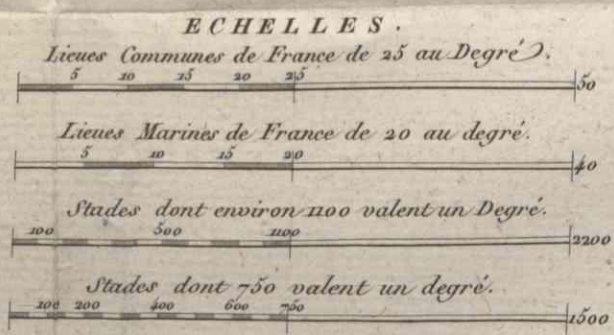 ECHELLES.
Lieues Communes de France de 25 au Degré.
5 10 15 20 25 50
Lieues Marines de France de 20 au degré.
5 10 15 20 40
Stades dont environ 1100 valent un Degré.
100 500 1100 2200
Stades dont 750 valent un degré.
100 200 400 600 750 1500